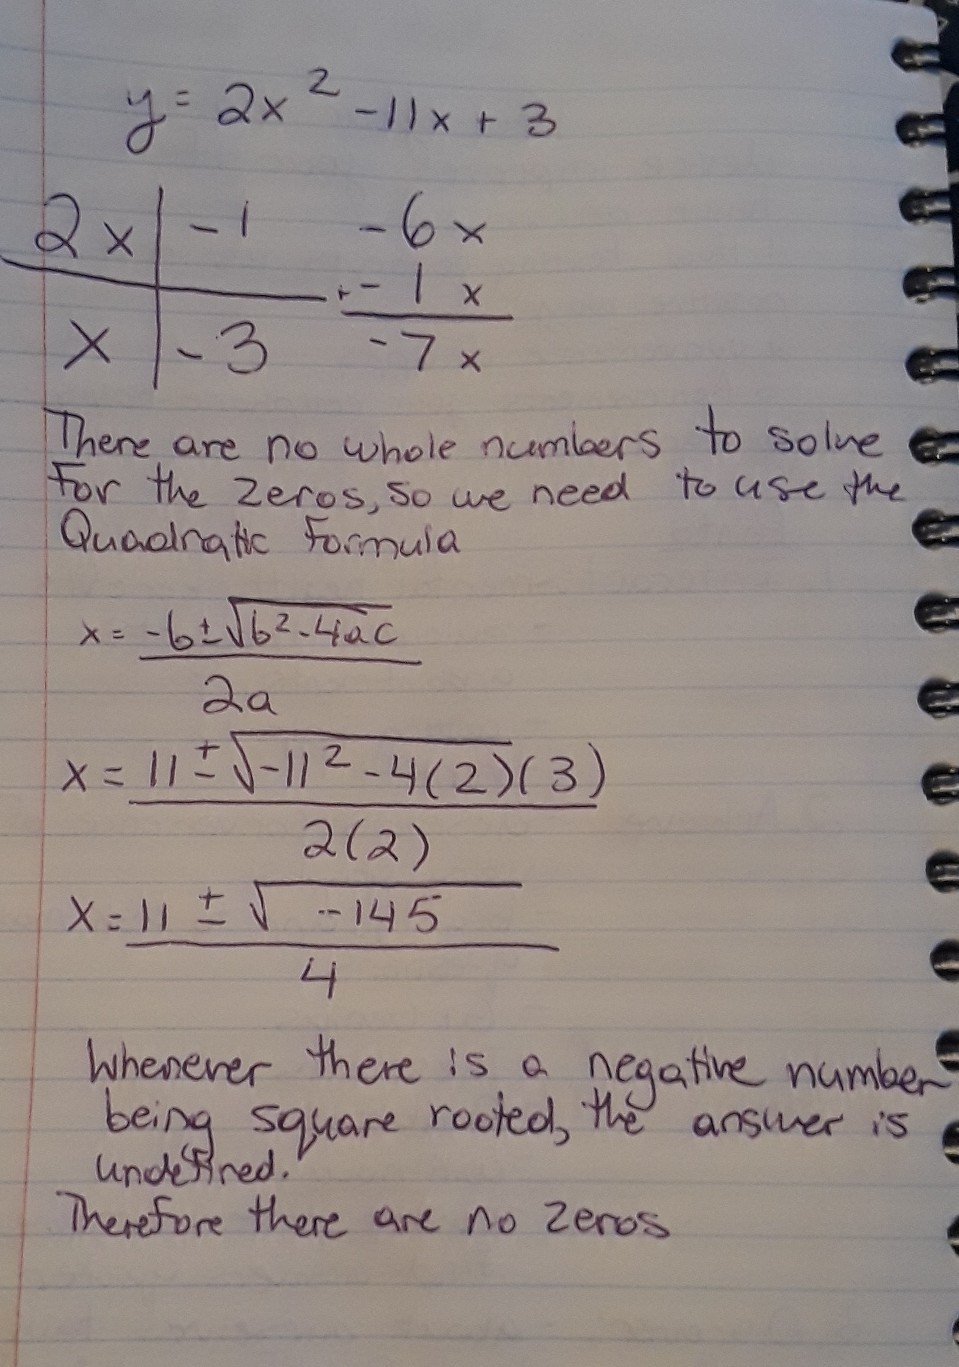 y = 2x² - 11x + 3
2x | -1   -6x
+ -1x
x | -3   -7x
There are no whole numbers to solve
for the zeros, so we need to use the
Quadratic Formula
x = -b ± √b² - 4ac
2a
x = 11 ± √-11² - 4(2)(3)
2(2)
x = 11 ± √ -145
4
Whenever there is a negative number
being square rooted, the answer is
undefined.
Therefore there are no zeros